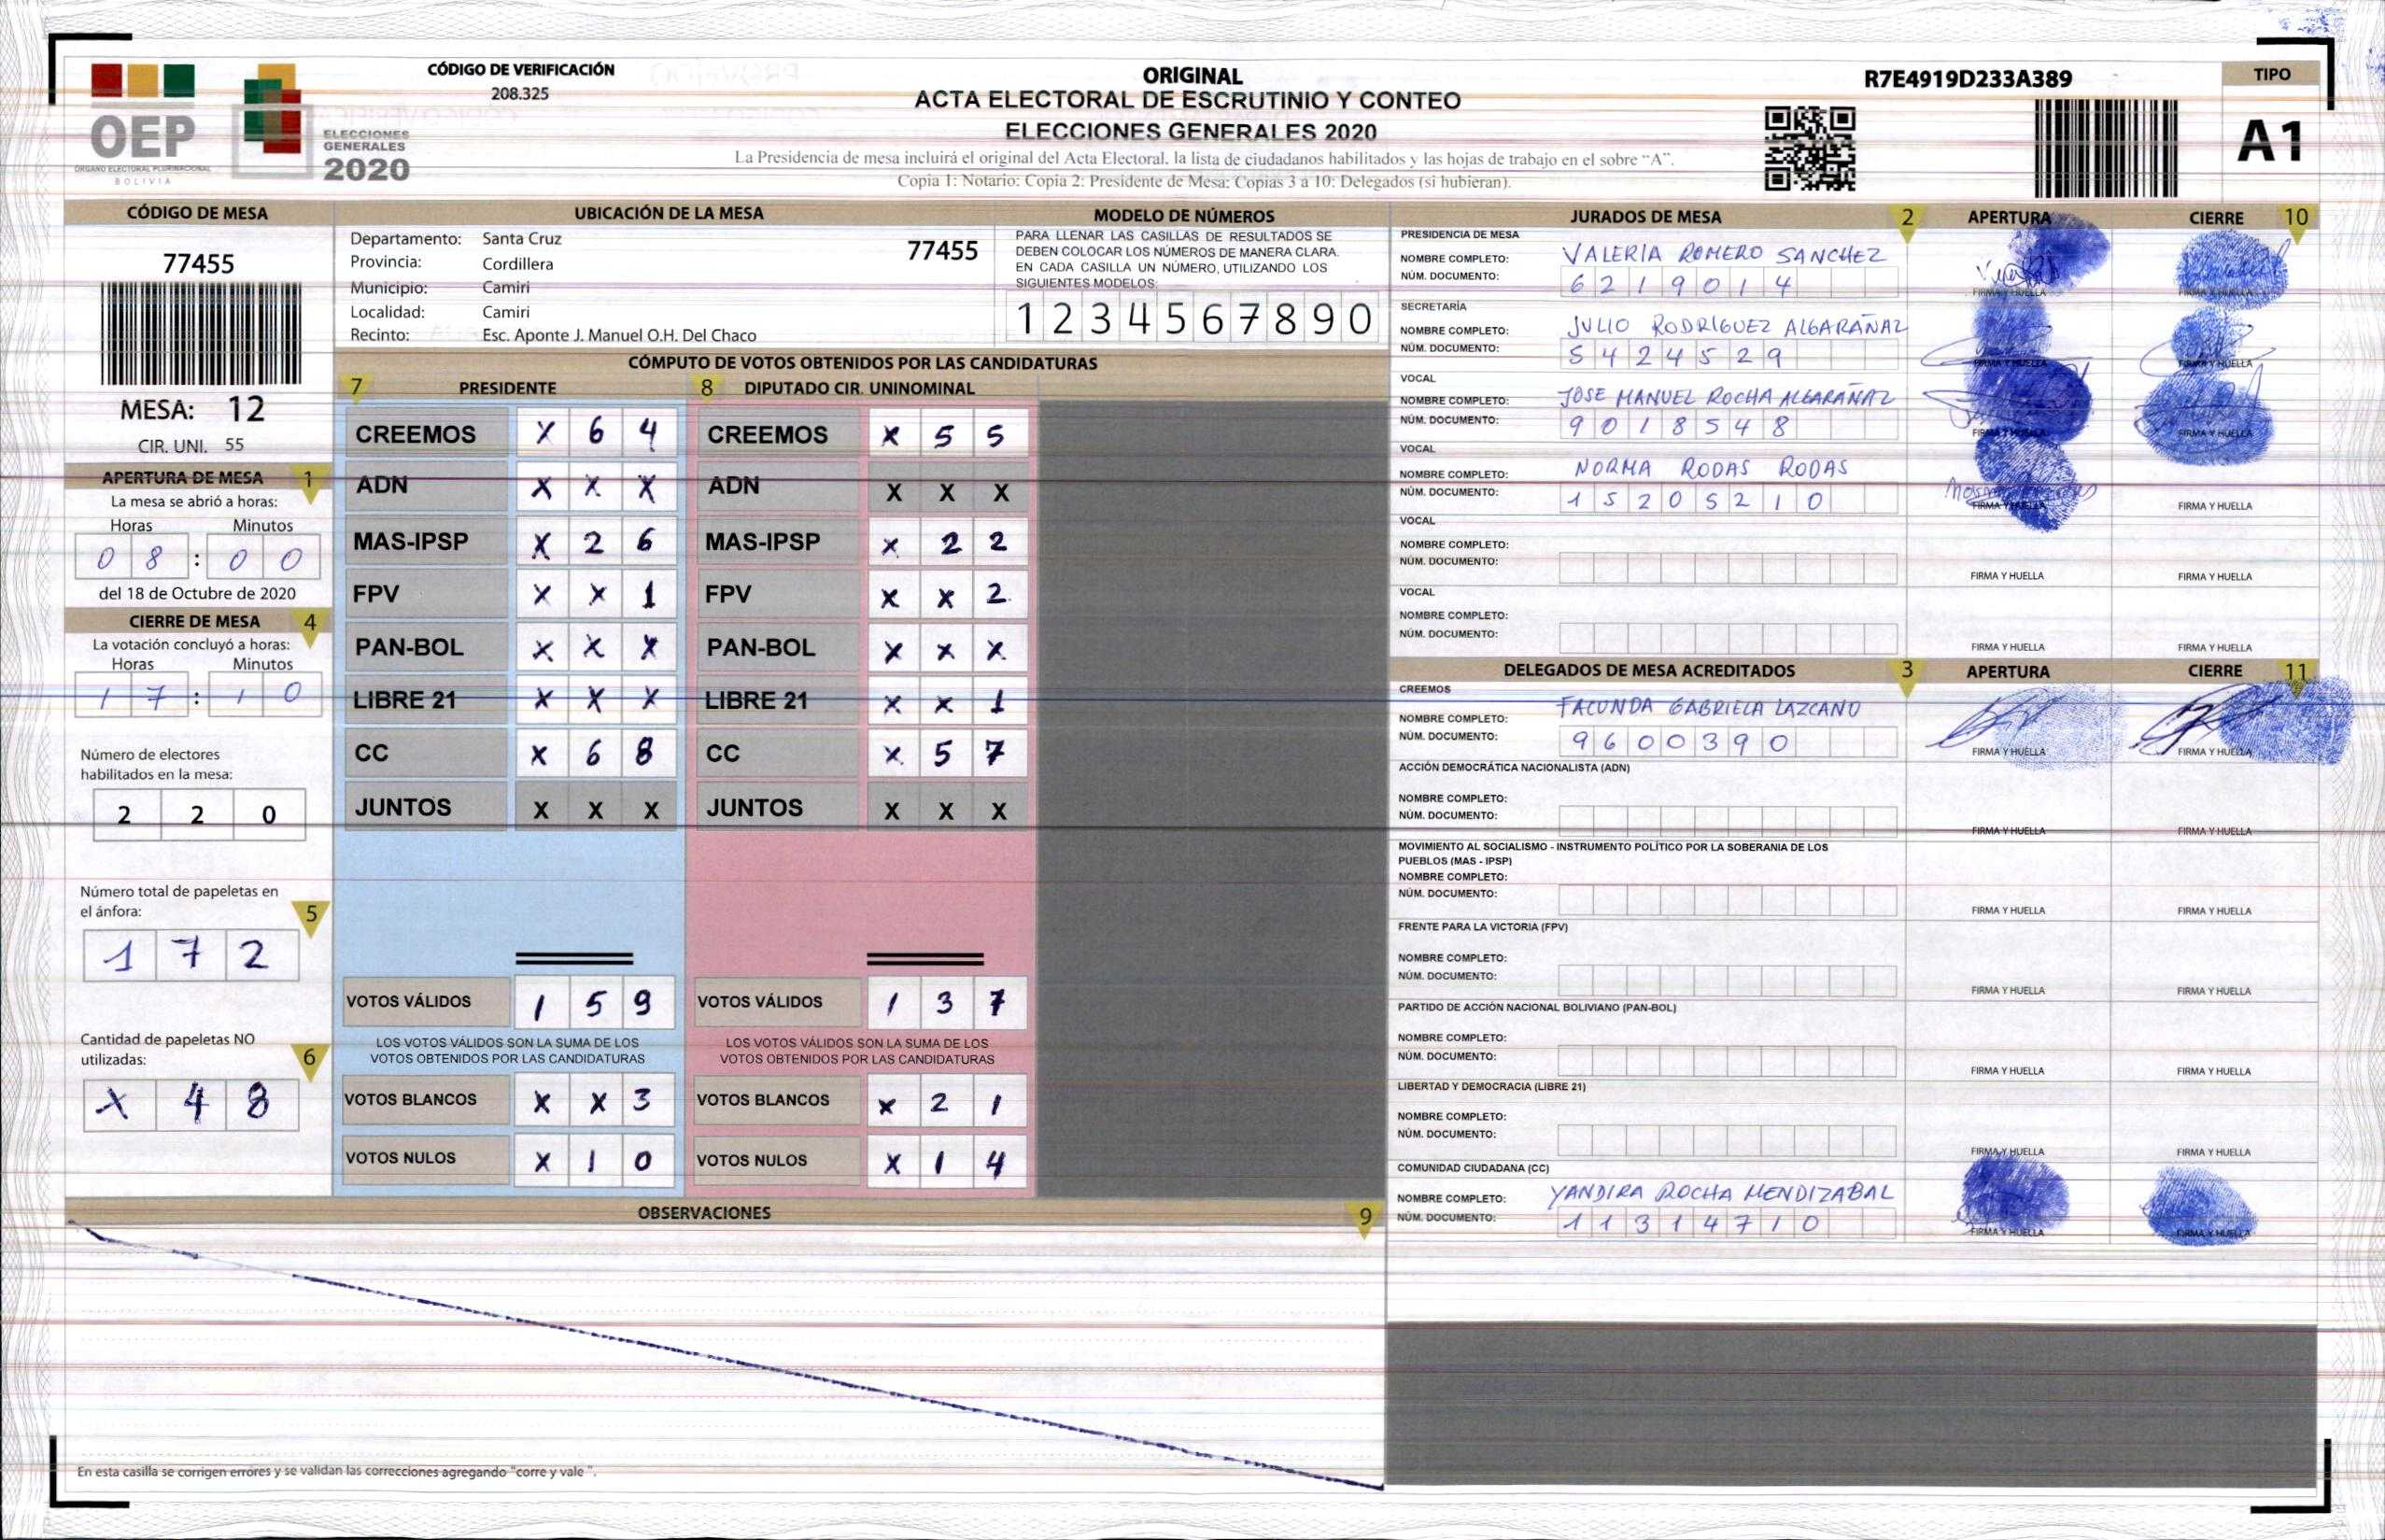 CÓDIGO DE VERIFICACIÓN
208.325
OEP
ÓRGANO ELECTORAL PLURINACIONAL
BOLIVIA
ELECCIONES
GENERALES
2020
ORIGINAL
ACTA ELECTORAL DE ESCRUTINIO Y CONTEO
ELECCIONES GENERALES 2020
La Presidencia de mesa incluirá el original del Acta Electoral, la lista de ciudadanos habilitados y las hojas de trabajo en el sobre “A”.
Copia 1: Notario; Copia 2: Presidente de Mesa; Copias 3 a 10: Delegados (si hubieran).
R7E4919D233A389
TIPO
A1
CÓDIGO DE MESA
77455
MESA: 12
CIR. UNI. 55
UBICACIÓN DE LA MESA
Departamento: Santa Cruz
77455
Provincia: Cordillera
Municipio: Camiri
Localidad: Camiri
Recinto: Esc. Aponte J. Manuel O.H. Del Chaco
MODELO DE NÚMEROS
PARA LLENAR LAS CASILLAS DE RESULTADOS SE
DEBEN COLOCAR LOS NÚMEROS DE MANERA CLARA.
EN CADA CASILLA UN NÚMERO, UTILIZANDO LOS
SIGUIENTES MODELOS:
1 2 3 4 5 6 7 8 9 0
APERTURA DE MESA 1
La mesa se abrió a horas:
Horas Minutos
0 8 : 0 0
del 18 de Octubre de 2020
CIERRE DE MESA 4
La votación concluyó a horas:
Horas Minutos
1 7 : 1 0
Número de electores
habilitados en la mesa:
2 2 0
Número total de papeletas en
el ánfora: 5
1 7 2
Cantidad de papeletas NO
utilizadas: 6
X 4 8
CÓMPUTO DE VOTOS OBTENIDOS POR LAS CANDIDATURAS
7 PRESIDENTE 8 DIPUTADO CIR. UNINOMINAL
CREEMOS X 6 4 CREEMOS X 5 5
ADN X X X ADN X X X
MAS-IPSP X 2 6 MAS-IPSP X 2 2
FPV X X 1 FPV X X 2
PAN-BOL X X X PAN-BOL X X X
LIBRE 21 X X X LIBRE 21 X X 1
CC X 6 8 CC X 5 7
JUNTOS X X X JUNTOS X X X
VOTOS VÁLIDOS 1 5 9 VOTOS VÁLIDOS 1 3 7
LOS VOTOS VÁLIDOS SON LA SUMA DE LOS LOS VOTOS VÁLIDOS SON LA SUMA DE LOS
VOTOS OBTENIDOS POR LAS CANDIDATURAS VOTOS OBTENIDOS POR LAS CANDIDATURAS
VOTOS BLANCOS X X 3 VOTOS BLANCOS X 2 1
VOTOS NULOS X 1 0 VOTOS NULOS X 1 4
OBSERVACIONES 9
En esta casilla se corrigen errores y se validan las correcciones agregando "corre y vale ".
JURADOS DE MESA 2 APERTURA CIERRE 10
PRESIDENCIA DE MESA
NOMBRE COMPLETO: VALERIA ROMERO SANCHEZ
NÚM. DOCUMENTO: 6 2 1 9 0 1 4
FIRMA Y HUELLA FIRMA Y HUELLA
SECRETARÍA
NOMBRE COMPLETO: JULIO RODRÍGUEZ ALGARAÑAZ
NÚM. DOCUMENTO: 5 4 2 4 5 2 9
FIRMA Y HUELLA FIRMA Y HUELLA
VOCAL
NOMBRE COMPLETO: JOSE MANUEL ROCHA ALGARAÑAZ
NÚM. DOCUMENTO: 9 0 1 8 5 4 8
FIRMA Y HUELLA FIRMA Y HUELLA
VOCAL
NOMBRE COMPLETO: NORMA RODAS RODAS
NÚM. DOCUMENTO: 1 5 2 0 5 2 1 0
FIRMA Y HUELLA FIRMA Y HUELLA
VOCAL
NOMBRE COMPLETO:
NÚM. DOCUMENTO:
FIRMA Y HUELLA FIRMA Y HUELLA
VOCAL
NOMBRE COMPLETO:
NÚM. DOCUMENTO:
FIRMA Y HUELLA FIRMA Y HUELLA
DELEGADOS DE MESA ACREDITADOS 3 APERTURA CIERRE 11
CREEMOS
NOMBRE COMPLETO: FACUNDA GABRIELA LAZCANO
NÚM. DOCUMENTO: 9 6 0 0 3 9 0
FIRMA Y HUELLA FIRMA Y HUELLA
ACCIÓN DEMOCRÁTICA NACIONALISTA (ADN)
NOMBRE COMPLETO:
NÚM. DOCUMENTO:
FIRMA Y HUELLA FIRMA Y HUELLA
MOVIMIENTO AL SOCIALISMO - INSTRUMENTO POLÍTICO POR LA SOBERANIA DE LOS
PUEBLOS (MAS - IPSP)
NOMBRE COMPLETO:
NÚM. DOCUMENTO:
FIRMA Y HUELLA FIRMA Y HUELLA
FRENTE PARA LA VICTORIA (FPV)
NOMBRE COMPLETO:
NÚM. DOCUMENTO:
FIRMA Y HUELLA FIRMA Y HUELLA
PARTIDO DE ACCIÓN NACIONAL BOLIVIANO (PAN-BOL)
NOMBRE COMPLETO:
NÚM. DOCUMENTO:
FIRMA Y HUELLA FIRMA Y HUELLA
LIBERTAD Y DEMOCRACIA (LIBRE 21)
NOMBRE COMPLETO:
NÚM. DOCUMENTO:
FIRMA Y HUELLA FIRMA Y HUELLA
COMUNIDAD CIUDADANA (CC)
NOMBRE COMPLETO: YANDIRA ROCHA MENDIZABAL
NÚM. DOCUMENTO: 1 1 3 1 4 7 1 0
FIRMA Y HUELLA FIRMA Y HUELLA